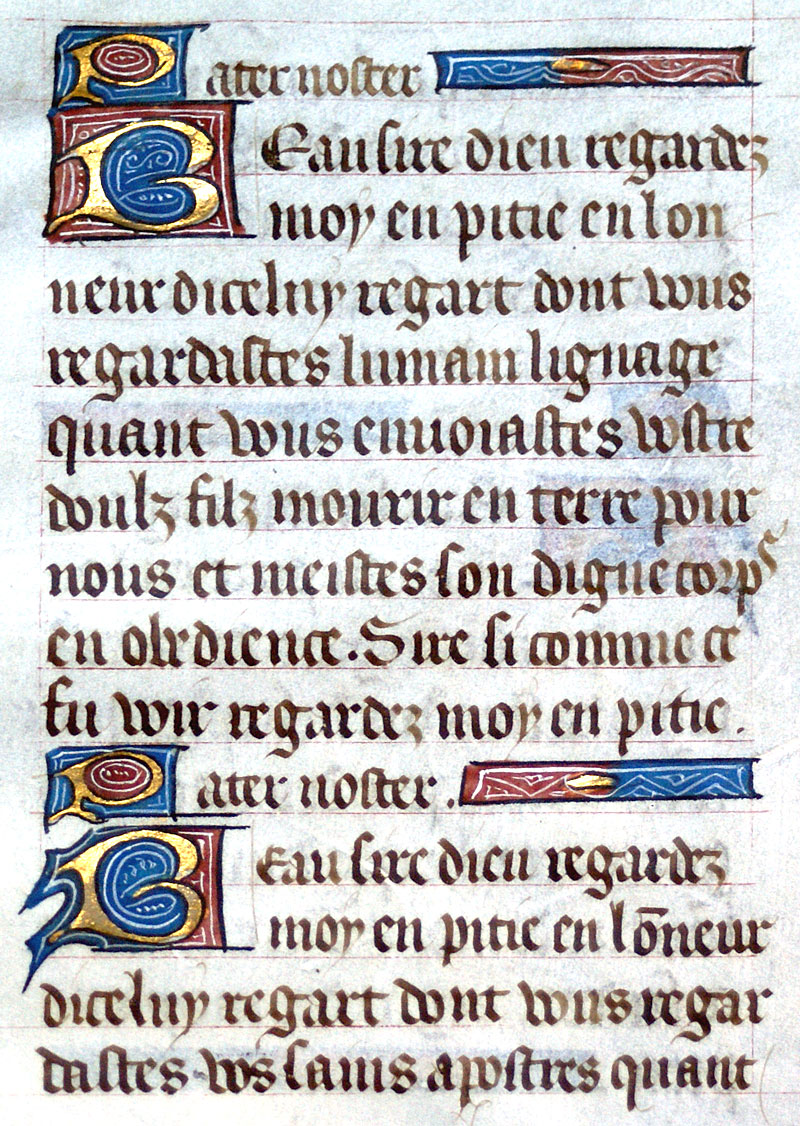 Pater noster
BEau sire dieu regardez
moy en pitie en lon
neur diceluy regart dont vous
regardastes lumain lignage
quant vous enuoiastes vostre
doulz filz mourir en terre pour
nous et meistes son digne corps
en obedience. Sire si comme ce
fu voir regardez moy en pitie.
Pater noster.
Beau sire dieu regardez
moy en pitie en lōneur
diceluy regart dont vous regar
dastes vos sains apostres quant